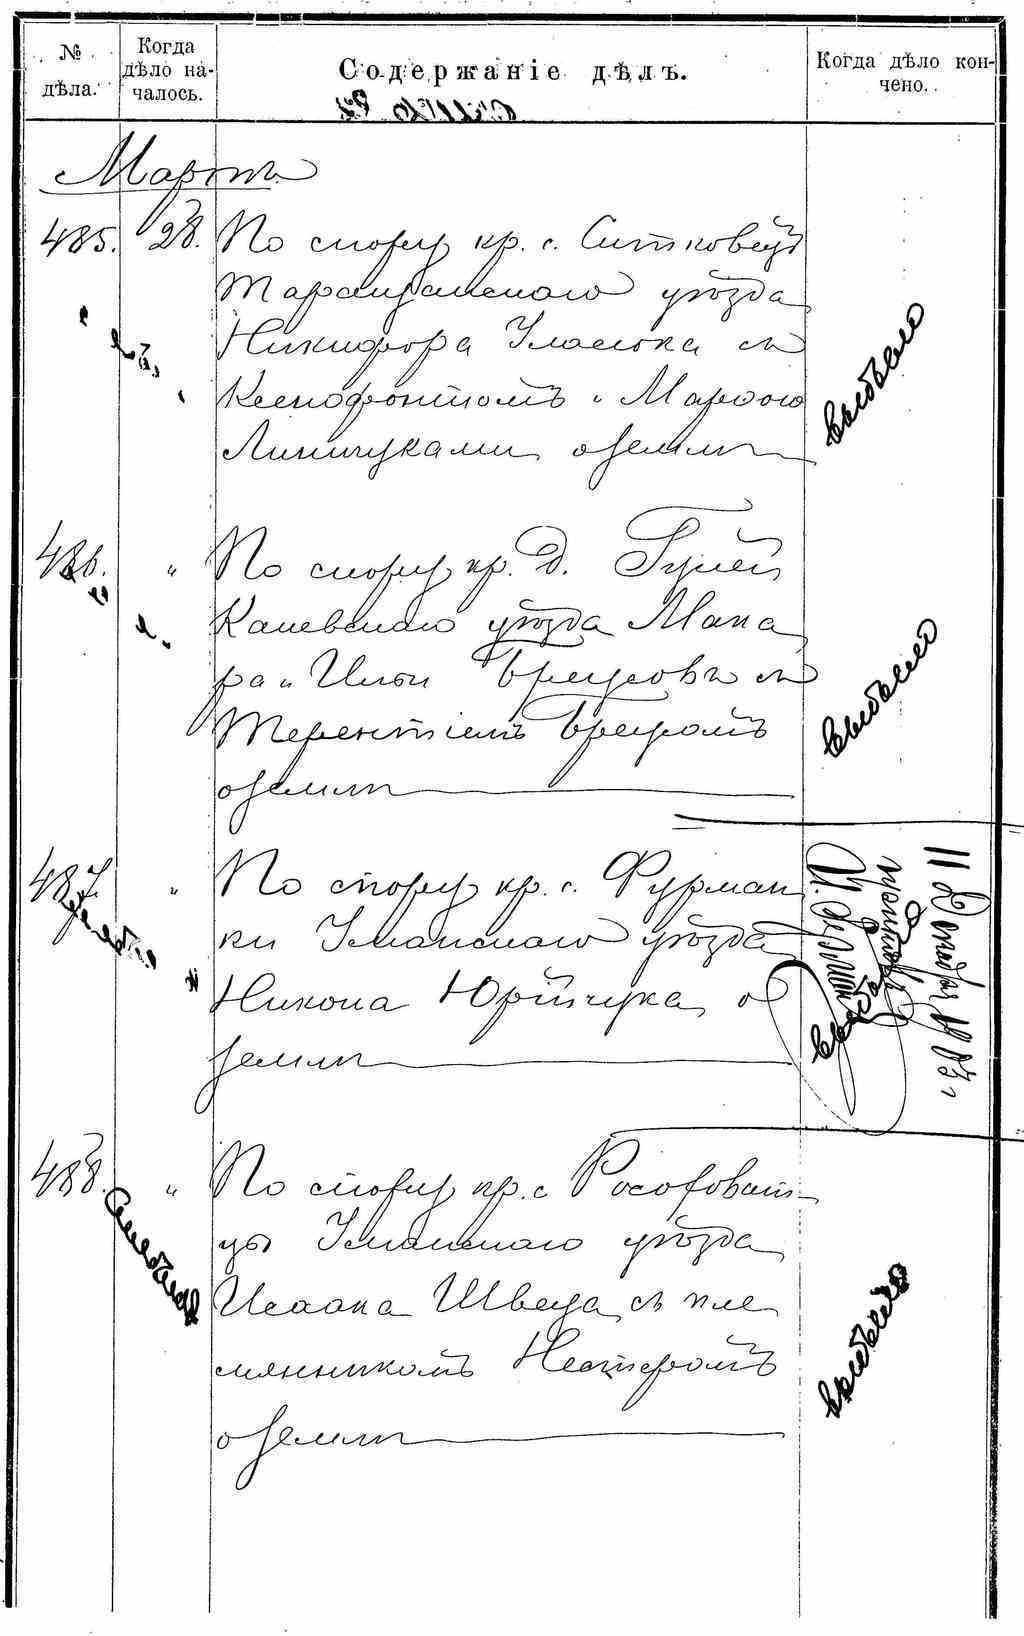 № дѣла.
Когда дѣло на-
чалось.
Содержаніе дѣлъ.
Когда дѣло кон-
чено.
Мартъ
485. 28. По спору кр. с. Ситковецъ
Таращанскаго уѣзда
Никифора Уласюка съ
Ксенофонтомъ и Марфою
Линчуками о землѣ
выбыло
486. " По спору кр. д. Гулей
Каневскаго уѣзда Мака
ра и Ильи Брецовъ съ
Терентіемъ Брецомъ
о землѣ
выбыло
487. " По спору кр. с. Фурман
ки Уманскаго уѣзда
Никона Юрійчука о
землѣ
11 Октября
выбыло
488. " По спору кр. с Росоховат
цы Уманскаго уѣзда
Исаака Швеца съ пле
мянникомъ Нестеромъ
о землѣ
выбыло